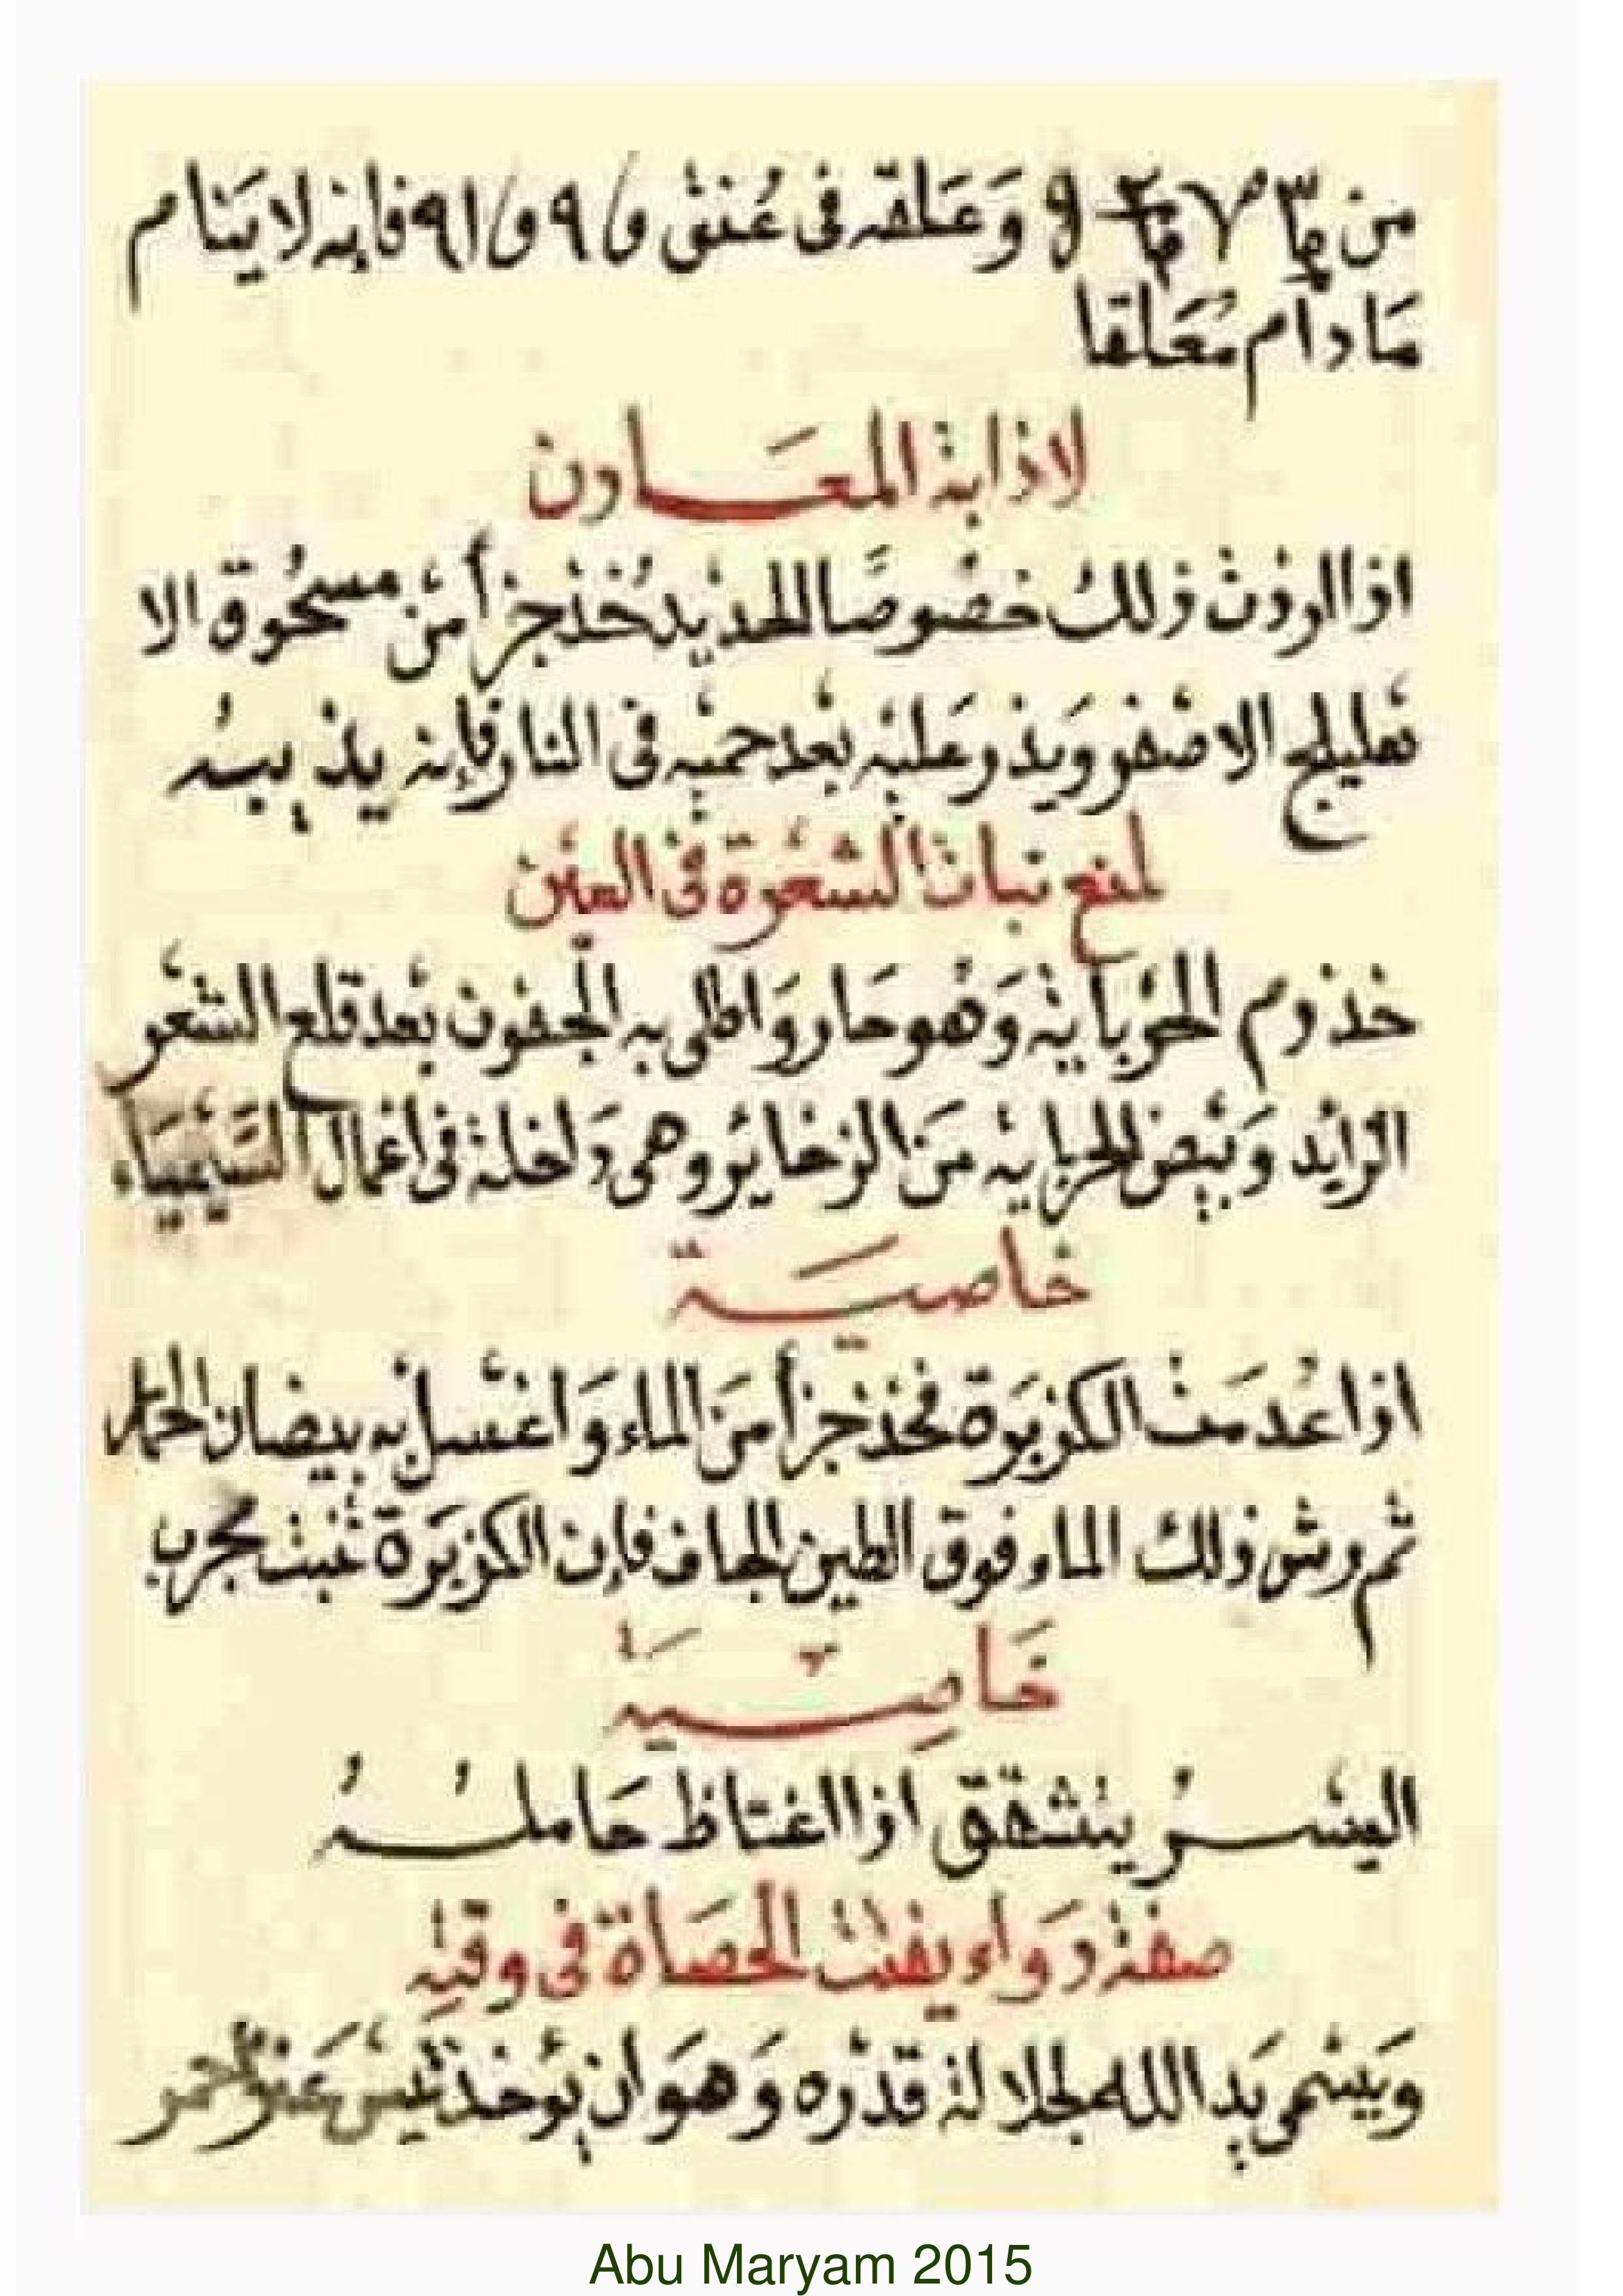 من وَعَلقه فى عُنق فإنه لا ينام
مَا دام مُعَلقا
لاذابة المعَـادن
اذا اردت ذلك خصُوصَا الحديد خُذ جزأ من مسحُوق الا
هليلج الاصفر وَيذر عَليه بَعد حميه فى النار فإنه يذيبـه
لمنع نبات الشعرة فى العين
خذ دم الحرباية وَهو حار وَاطلى به الجفون بَعد قلع الشعر
الزايد وَبيض الحرباية مَن الزخاير وهى دَاخلة فى اعمال السَّيميَاء
خاصيَـة
اذا عُدمَت الكزبَرة فخذ جزأ مَن الماء وَاغسل به بيضان الحمل
ثم رش ذلك الماء فوق الطين الجاف فإن الكزبَرة تنبت مجرب
خَاصِـيَة
اليسـر ينشقق اذا اغتاظ حَاملـهُ
صفة دوَاء يفتت الحصَاة فى وقتِه
وَيَسمى يَد الله لجلالة قدره وَهوَ ان يؤخذ تيس
Abu Maryam 2015